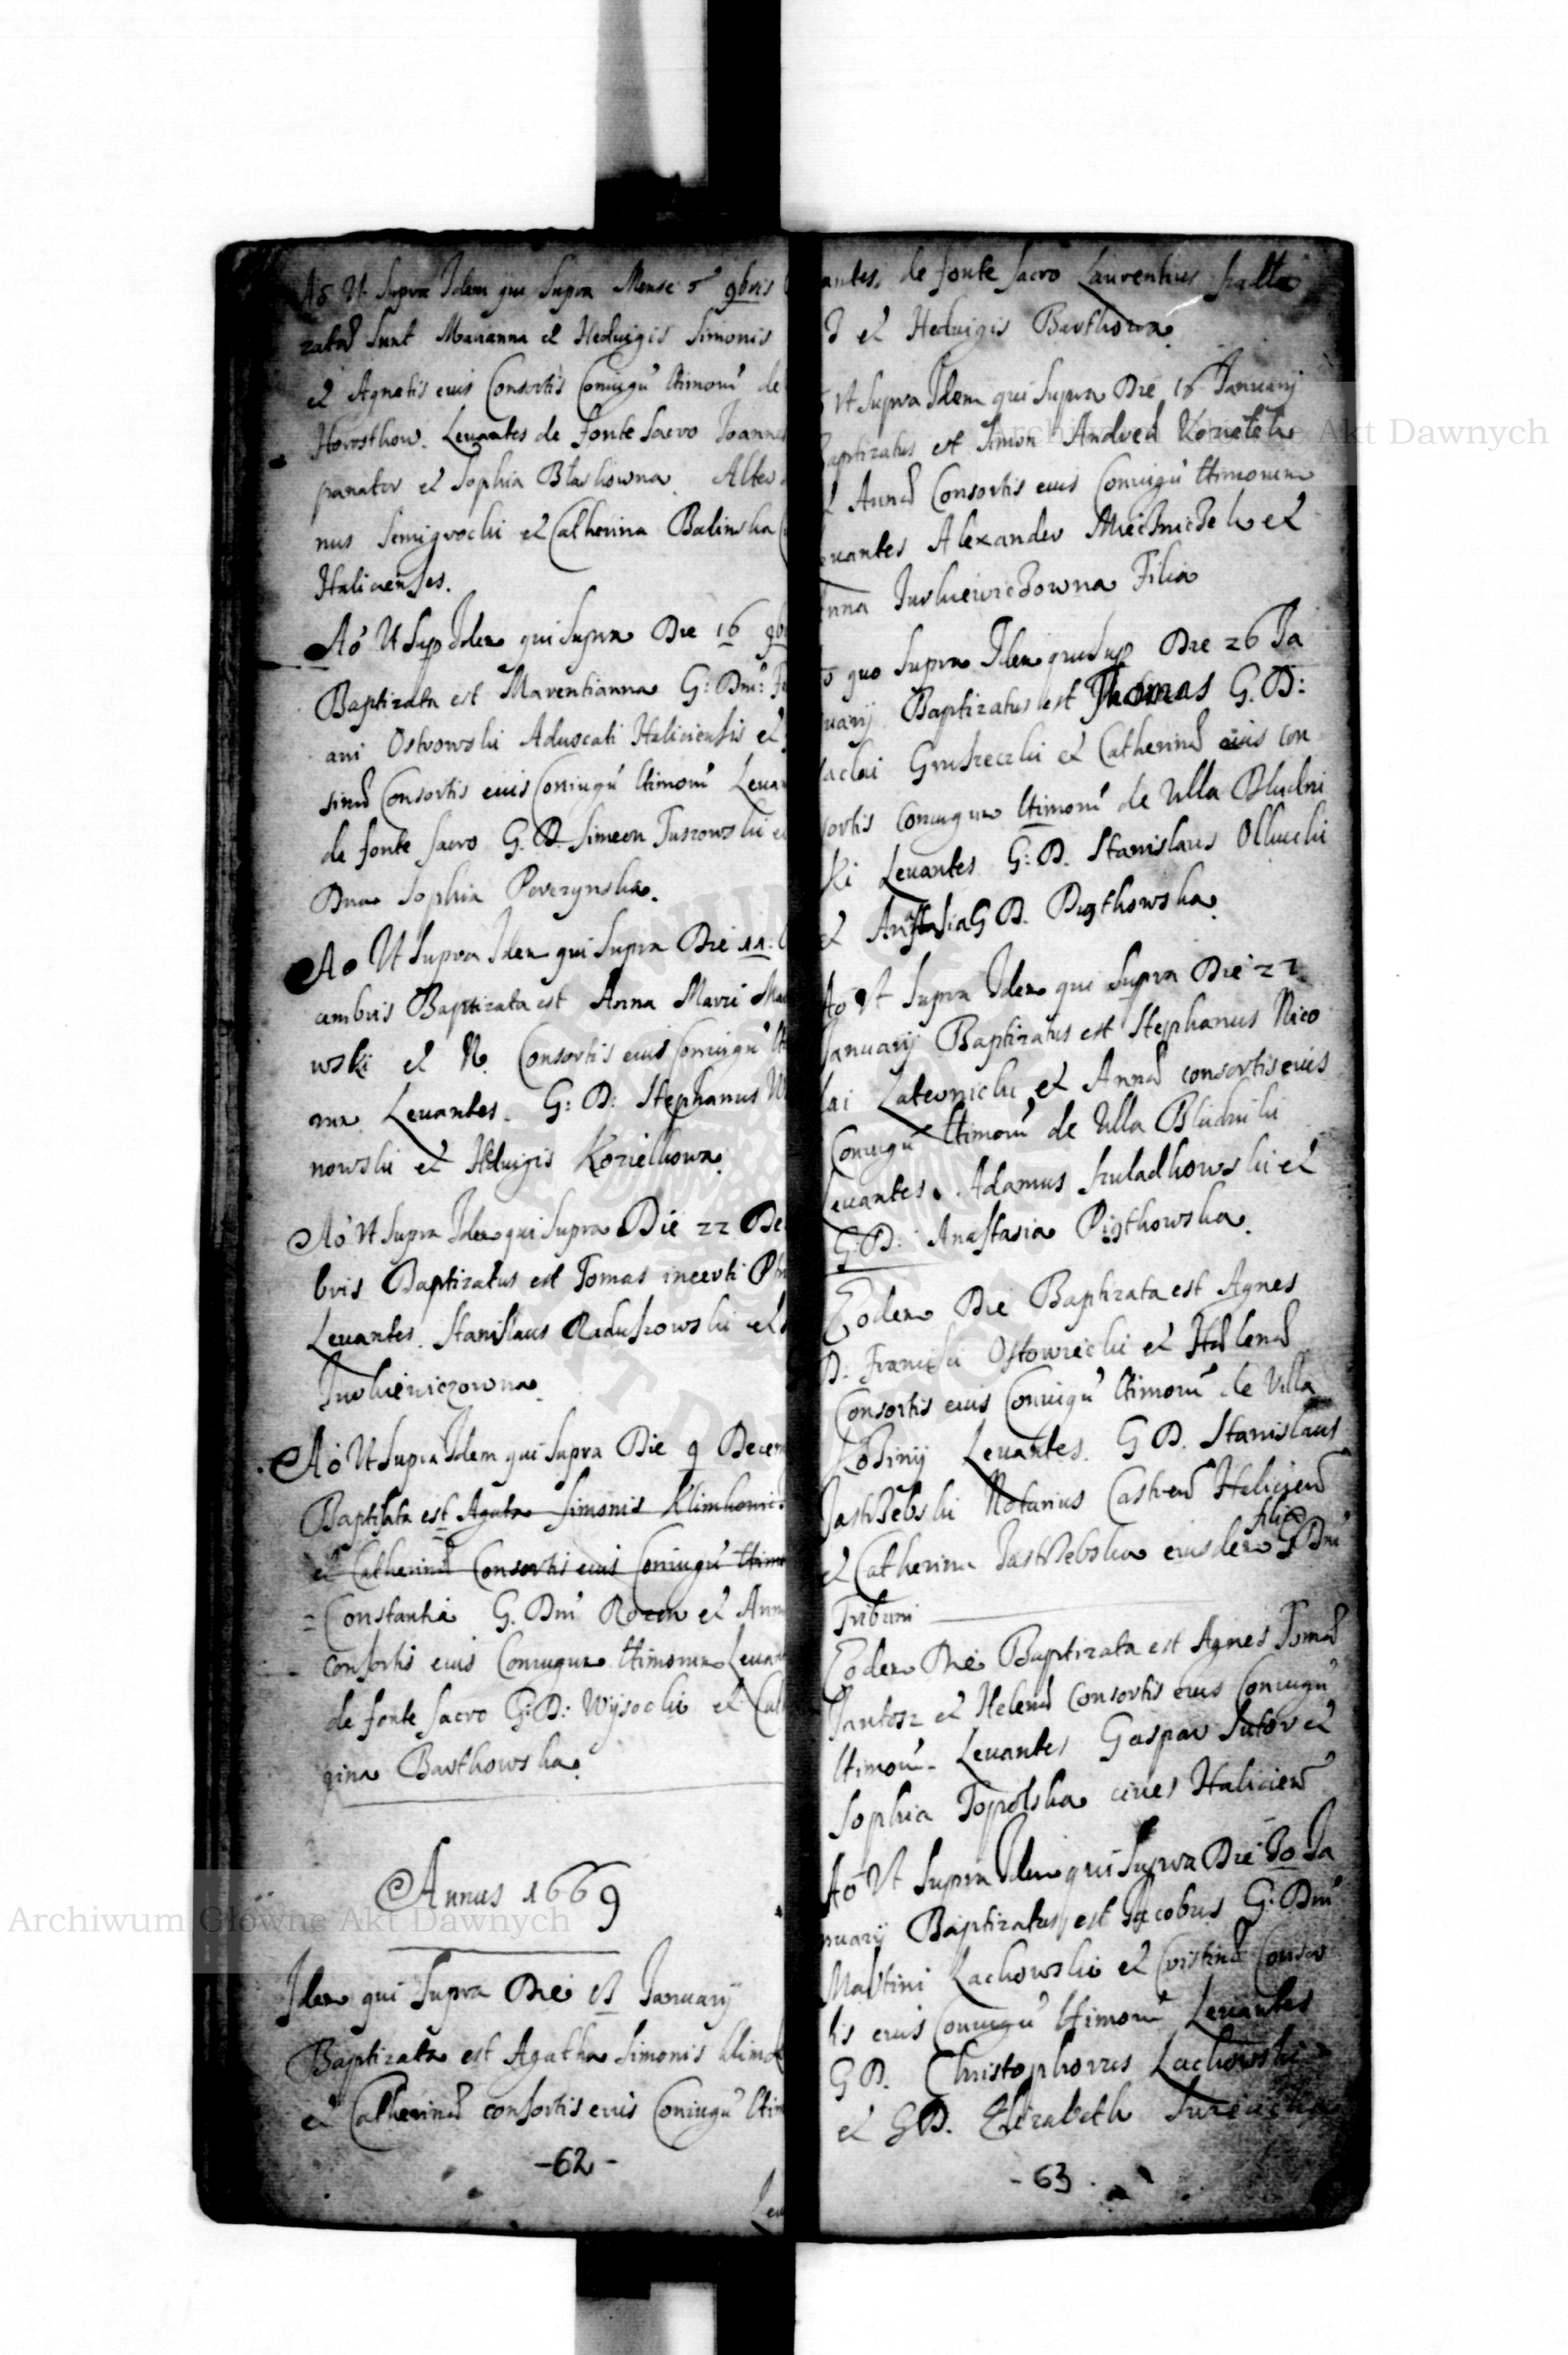 Ao Ut Supra Idem qui Supra Mense 9bris
zatæ sunt Marianna et Heduigis Simonis
et Agnetis eius Consortis Coniugũ ltimorũ de
Horosthow. Leuantes de fonte Sacro Joannes
panator et Sophia Błaskowna. Alter
nus Semigrocki et Catherina Balinska
Halicienses.
Ao Ut Sup Idem qui Supra Die 16 9b
Baptizata est Marentianna G: Dni:
ani Ostrowski Aduocati Haliciensis et
sinæ Consortis eius Coniugũ ltimorũ Leuan
de fonte Sacro G. D. Simeon Turzowski et
Dna Sophia Poverzynska.
Ao Ut Supra Idem qui Supra Die 11:
cembris Baptizata est Anna Marci
wski et N. Consortis eius Coniugũ lti
rum Leuantes. G: D: Stephanus
nowski et Heduigis Kozielkowa.
Ao Ut Supra Idem qui Supra Die 22 De
bris Baptizatus est Tomas incerti
Leuantes. Stanislaus Raduszowski et
Jurkiewiczowna.
Ao Ut Supra Idem qui Supra Die 9 Decem
Baptizata est Agata Simonis Klimkowic
et Catherinæ Consortis eius Coniugũ ltimo
Constantia G. Dni Rozen et Ann
consortis eius Coniugum ltimorum Leuan
de fonte Sacro G: D: Wysocki et Cat
rina Barthowska.
Annus 1669
Idem qui Supra Die Januarij
Baptizata est Agatha Simonis klimk
et Catherinæ consortis eius Coniugũ ltim
-62-
Leu
antes. de fonte Sacro Laurentius Szalta
et Heduigis Barthowa.
Ut Supra Idem qui Supra Die 16 Januarij
Baptizatus est Simon Andreæ
et Annæ Consortis eius Coniugũ ltimorum
euantes Alexander et
Anna Jurkiewiczowna Filia
o quo Supra Idem qui Sup Die 26 Ja
nuarij Baptizatus est Thomas G. D:
Gruszeczki et Catherinæ eius con
sortis Coniugum ltimorũ de Villa Bludni
ki Leuantes G: D. Stanislaus
et Anastasia G D. Piąthowska.
Ao Ut Supra Idem qui Supra Die 27
Januarij Baptizatus est Stephanus Nico
lai Laternicki et Annæ consortis eius
Coniugũ ltimorũ de Villa Bludniki
Leuantes. Adamus Szuladkowski et
G: D: Anastasia Piąthowska.
Eodem Die Baptizata est Agnes
D. Francisci Ostowiecki et Helenæ
Consortis eius Coniugũ ltimorũ de Villa
Leuantes. G D. Stanislaus
Jastrzebski Notarius Castren Halicien
filia
et Catherina Jastrzebska eiusdem G Dni
Tribuni
Eodem Die Baptizata est Agnes Tomæ
Jantosz et Helenæ Consortis eius Coniugũ
ltimorũ. Leuantes Gaspar Sutor et
Sophia Topolska ciues Halicien
Ao Ut Supra Idem qui Supra Die 30 Ja
nuarij Baptizatus est Jacobus G: Dni
Martini Lachowski et Cristinæ Consor
tis eius Coniugũ ltimorũ Leuantes
G D. Christophorus Lachowski
et G D. Elizabeth
- 63 -